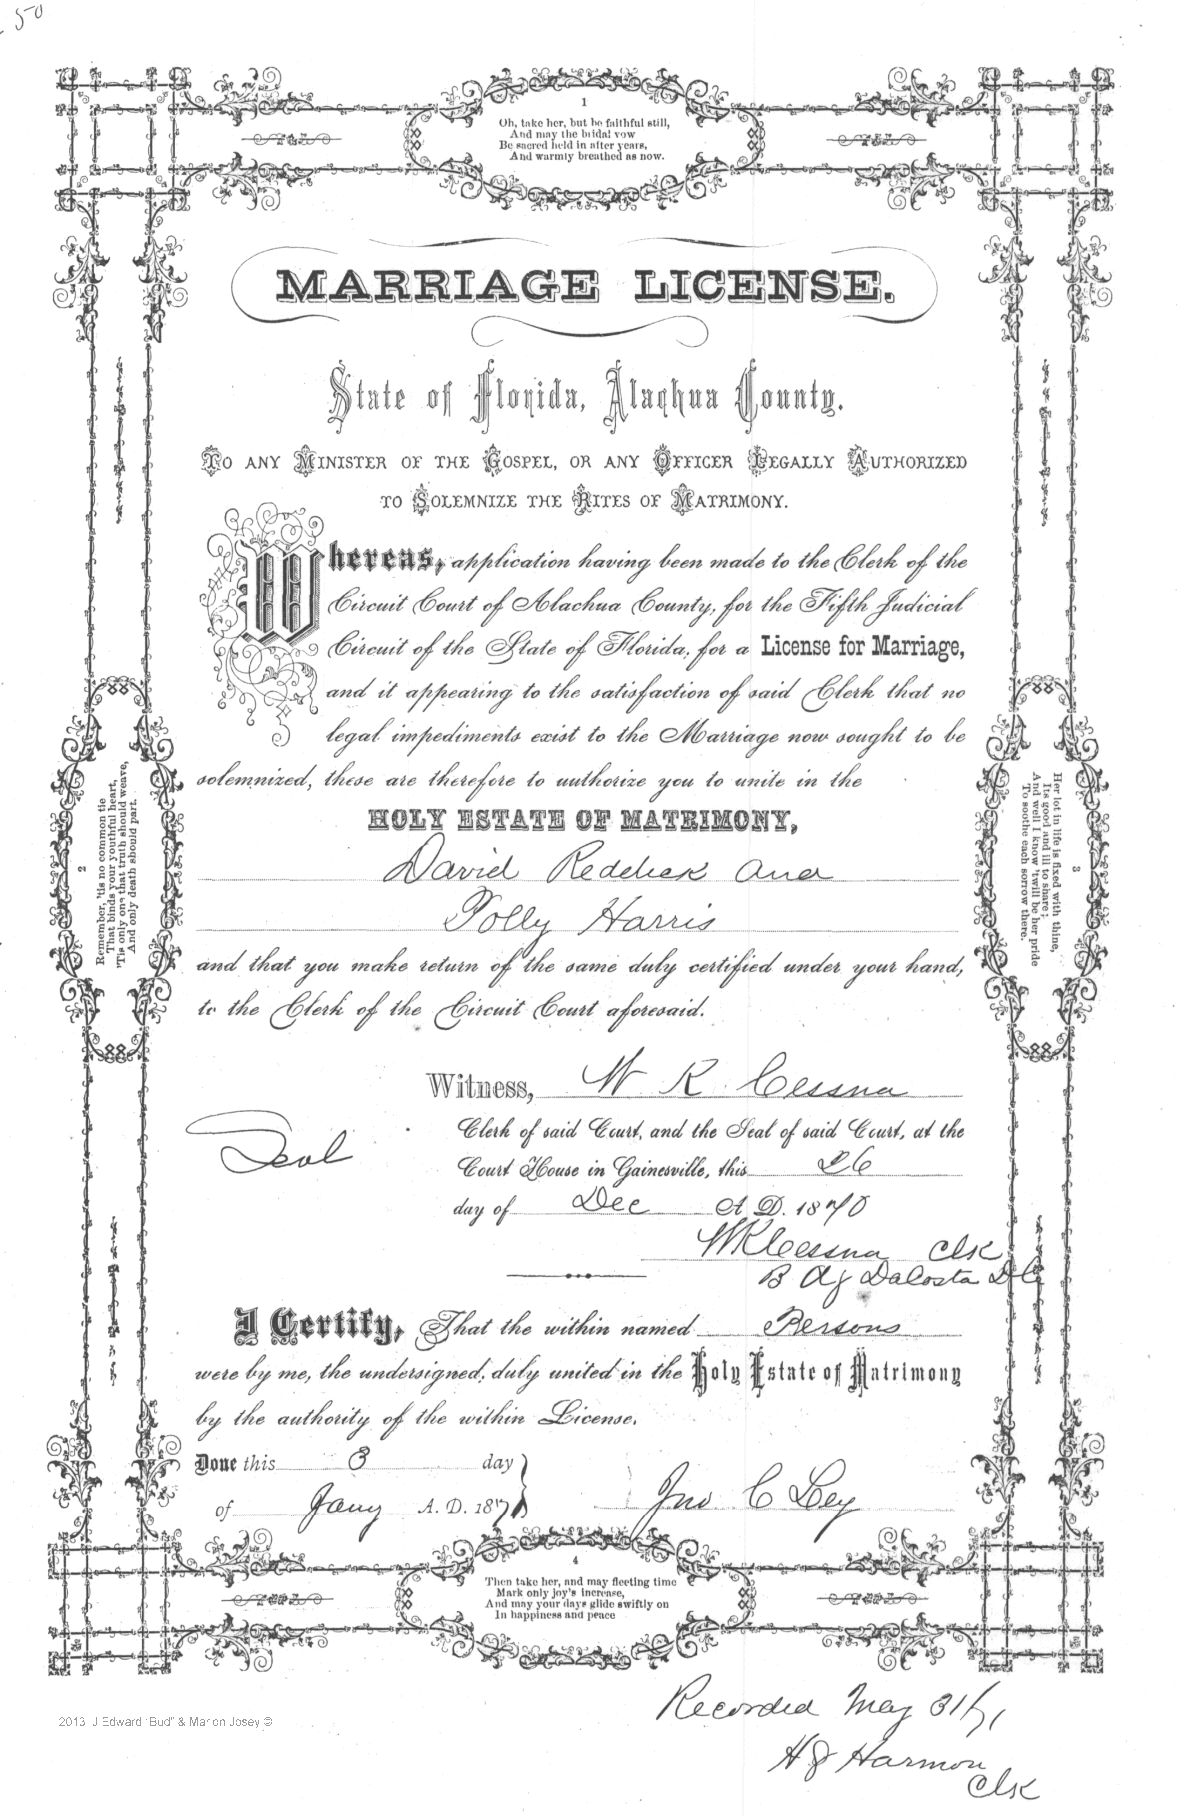 50
1
Oh, take her, but be faithful still,
And may the bridal vow
Be sacred held in after years,
And warmly breathed as now.
MARRIAGE LICENSE.
State of Florida, Alachua County.
TO ANY MINISTER OF THE GOSPEL, OR ANY OFFICER LEGALLY AUTHORIZED
TO SOLEMNIZE THE RITES OF MATRIMONY.
Whereas, application having been made to the Clerk of the
Circuit Court of Alachua County, for the Fifth Judicial
Circuit of the State of Florida, for a License for Marriage,
and it appearing to the satisfaction of said Clerk that no
legal impediments exist to the Marriage now sought to be
solemnized, these are therefore to authorize you to unite in the
HOLY ESTATE OF MATRIMONY,
David Reddick and
Polly Harris
and that you make return of the same duly certified under your hand,
to the Clerk of the Circuit Court aforesaid.
2
Remember, 'tis no common tie
That binds your youthful heart,
'Tis only one that truth should weave,
And only death should part.
3
Her lot in life is fixed with thine,
Its good and ill to share;
And well I know 'twill be her pride
To soothe each sorrow there.
Witness, W K Cessna
Seal
Clerk of said Court, and the Seal of said Court, at the
Court House in Gainesville, this 26
day of Dec A D. 1870
W K Cessna Clk
B AJ DaCosta
I Certify, That the within named Persons
were by me, the undersigned, duly united in the Holy Estate of Matrimony
by the authority of the within License.
Done this 3 day
of Jany A. D. 1871
Jno C Ley
4
Then take her, and may fleeting time
Mark only joy's increase,
And may your days glide swiftly on
In happiness and peace
Recorded May 31/71
H J Harmon
Clk
2013 J Edward "Bud" & Marion Josey ©